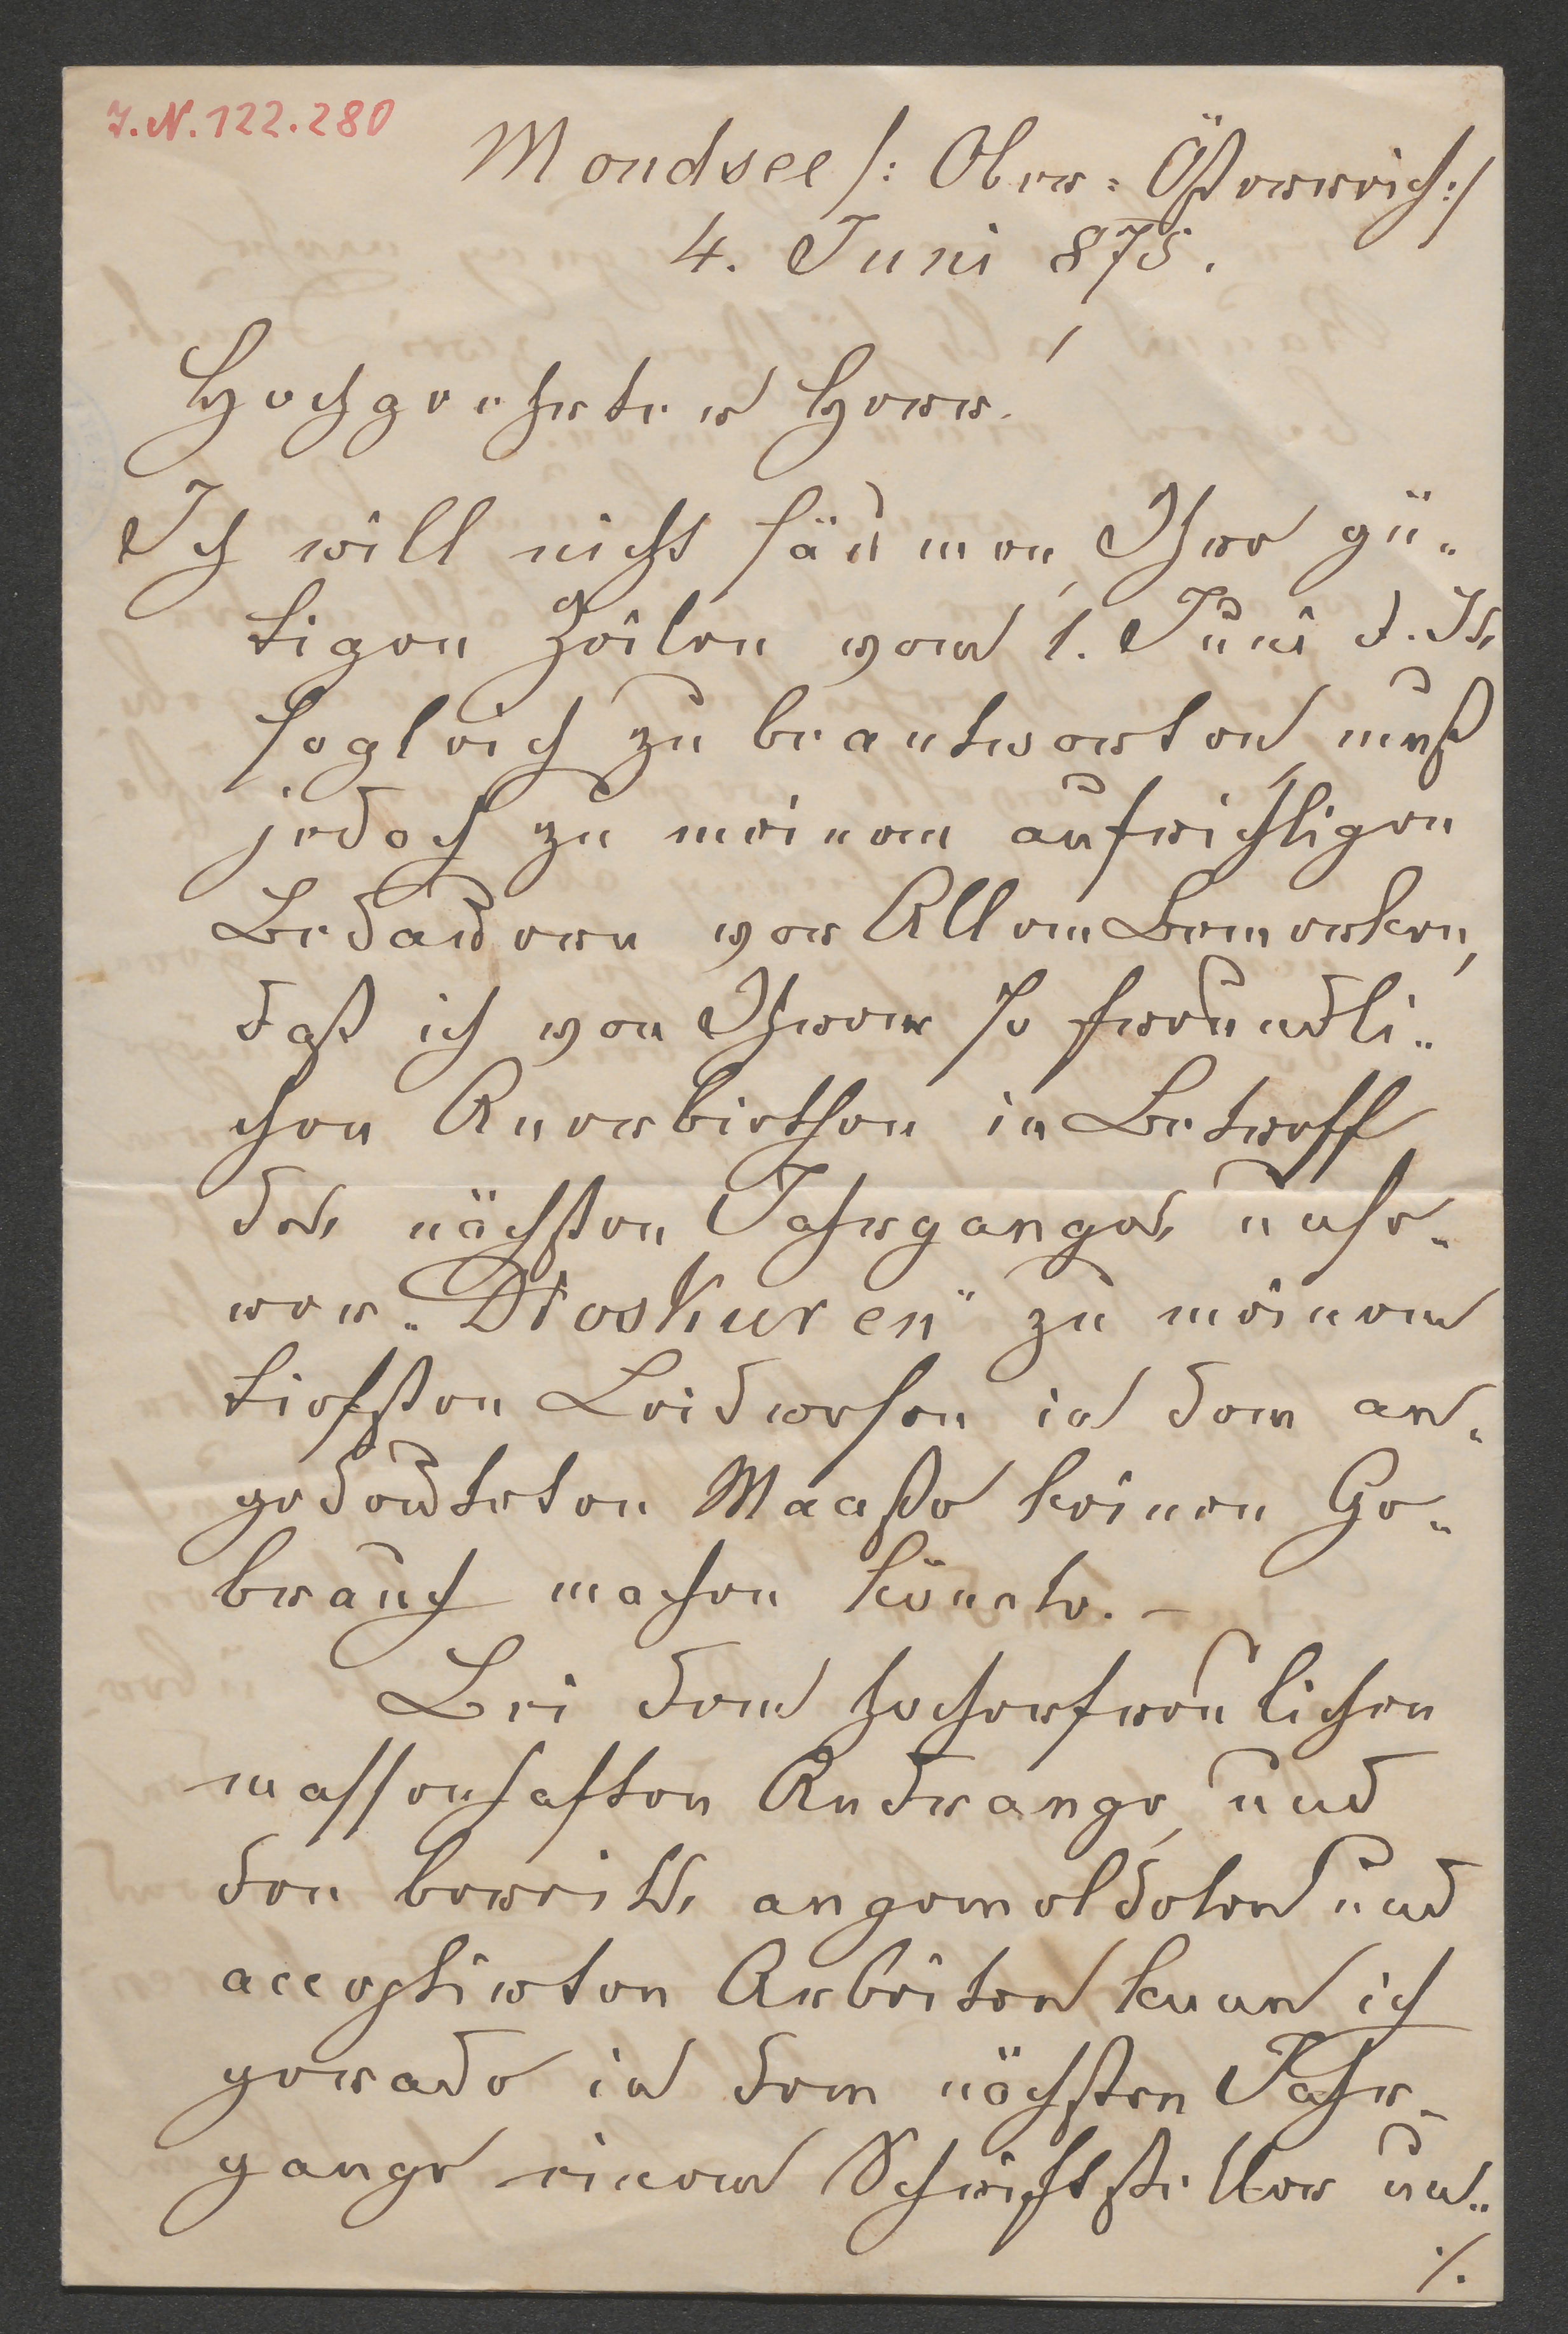 I.N. 122.280
Mondsee /: Ober-Österreich :/
4. Juni 875.
Hochgeehrter Herr!
Ich will nicht säumen, Ihre gü-
tigen Zeilen vom 1. Juni d. Js.
sogleich zu beantworten, muß
jedoch zu meinem aufrichtigen
Bedauern vor Allem bemerken,
daß ich von Ihrem so freundli-
chen Anerbiethen in Betreff
des nächsten Jahrganges unse-
rer „Dioskuren" zu meinem
tiefsten Leidwesen in dem an-
gedeuteten Maaße keinen Ge-
brauch machen könnte. –
Bei dem hocherfreulichen
massenhaften Andrange, und
den bereits angemeldeten und
acceptirten Arbeiten kann ich
gerade in dem nächsten Jahr-
gange einem Schriftsteller un-
./.